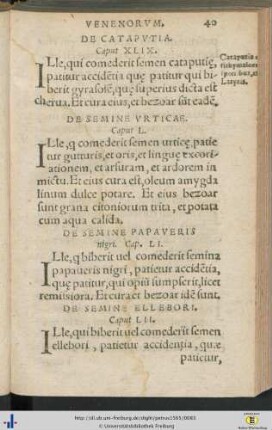 VENENORVM. 40
DE CATAPVTIA.
Caput XLIX.
ILle, qui comederit semen cataputię,
patitur accidētia quę patitur qui bi-
berit gyrasolē, quę superius dicta est
cherua. Et cura eius, et bezoar sūt eadē.
Cataputia
DE SEMINE VRTICAE.
Caput L.
ILle, q comederit semen urticę, patie
tur guturis, et oris, et linguę excori-
ationem, et arsuram, et ardorem in
mictu. Et eius cura est, oleum amygda
linum dulce potare. Et eius bezoar
sunt grana citoniorum trita, et potata
cum aqua calida.
DE SEMINE PAPAVERIS
nigri. Cap. LI.
ILle, q biberit uel comederit semina
papaueris nigri, patietur accidētia,
quę patitur, qui opiū sumpserit, licet
remissiora. Et cura et bezoar idē sunt.
DE SEMINE ELLEBORI.
Caput LII.
ILle, qui biberit uel comederit semen
ellebori, patietur accidentia, quæ
patitur,
http://dl.ub.uni-freiburg.de/diglit/petrus1565/0083
© Universitätsbibliothek Freiburg